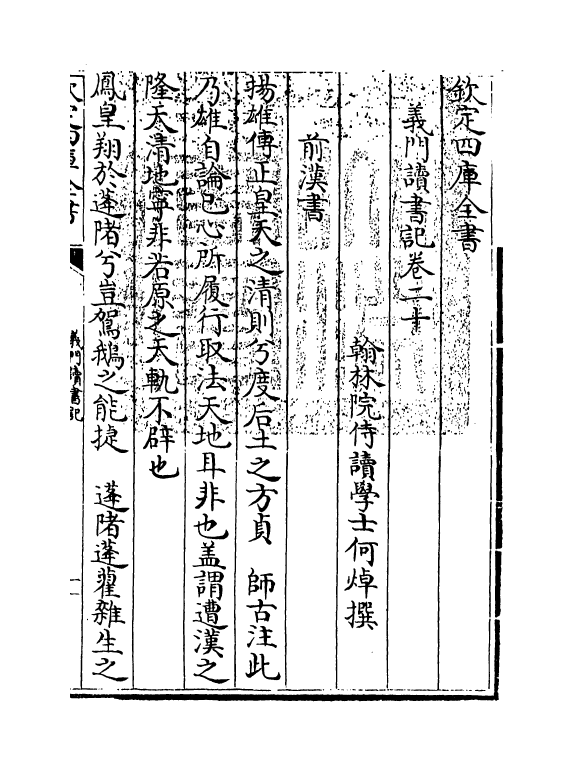 欽定四庫全書
義門讀書記卷二十
翰林院侍讀學士何焯撰
前漢書
揚雄傳正皇天之清則兮度后土之方貞　師古注此
乃雄自論已心所履行取法天地耳非也盖謂遭漢之
隆天清地寧非若原之天軌不辟也
鳳皇翔於蓬陼兮豈駕鵝之能捷　蓬陼蓬藋雜生之
義門讀書記